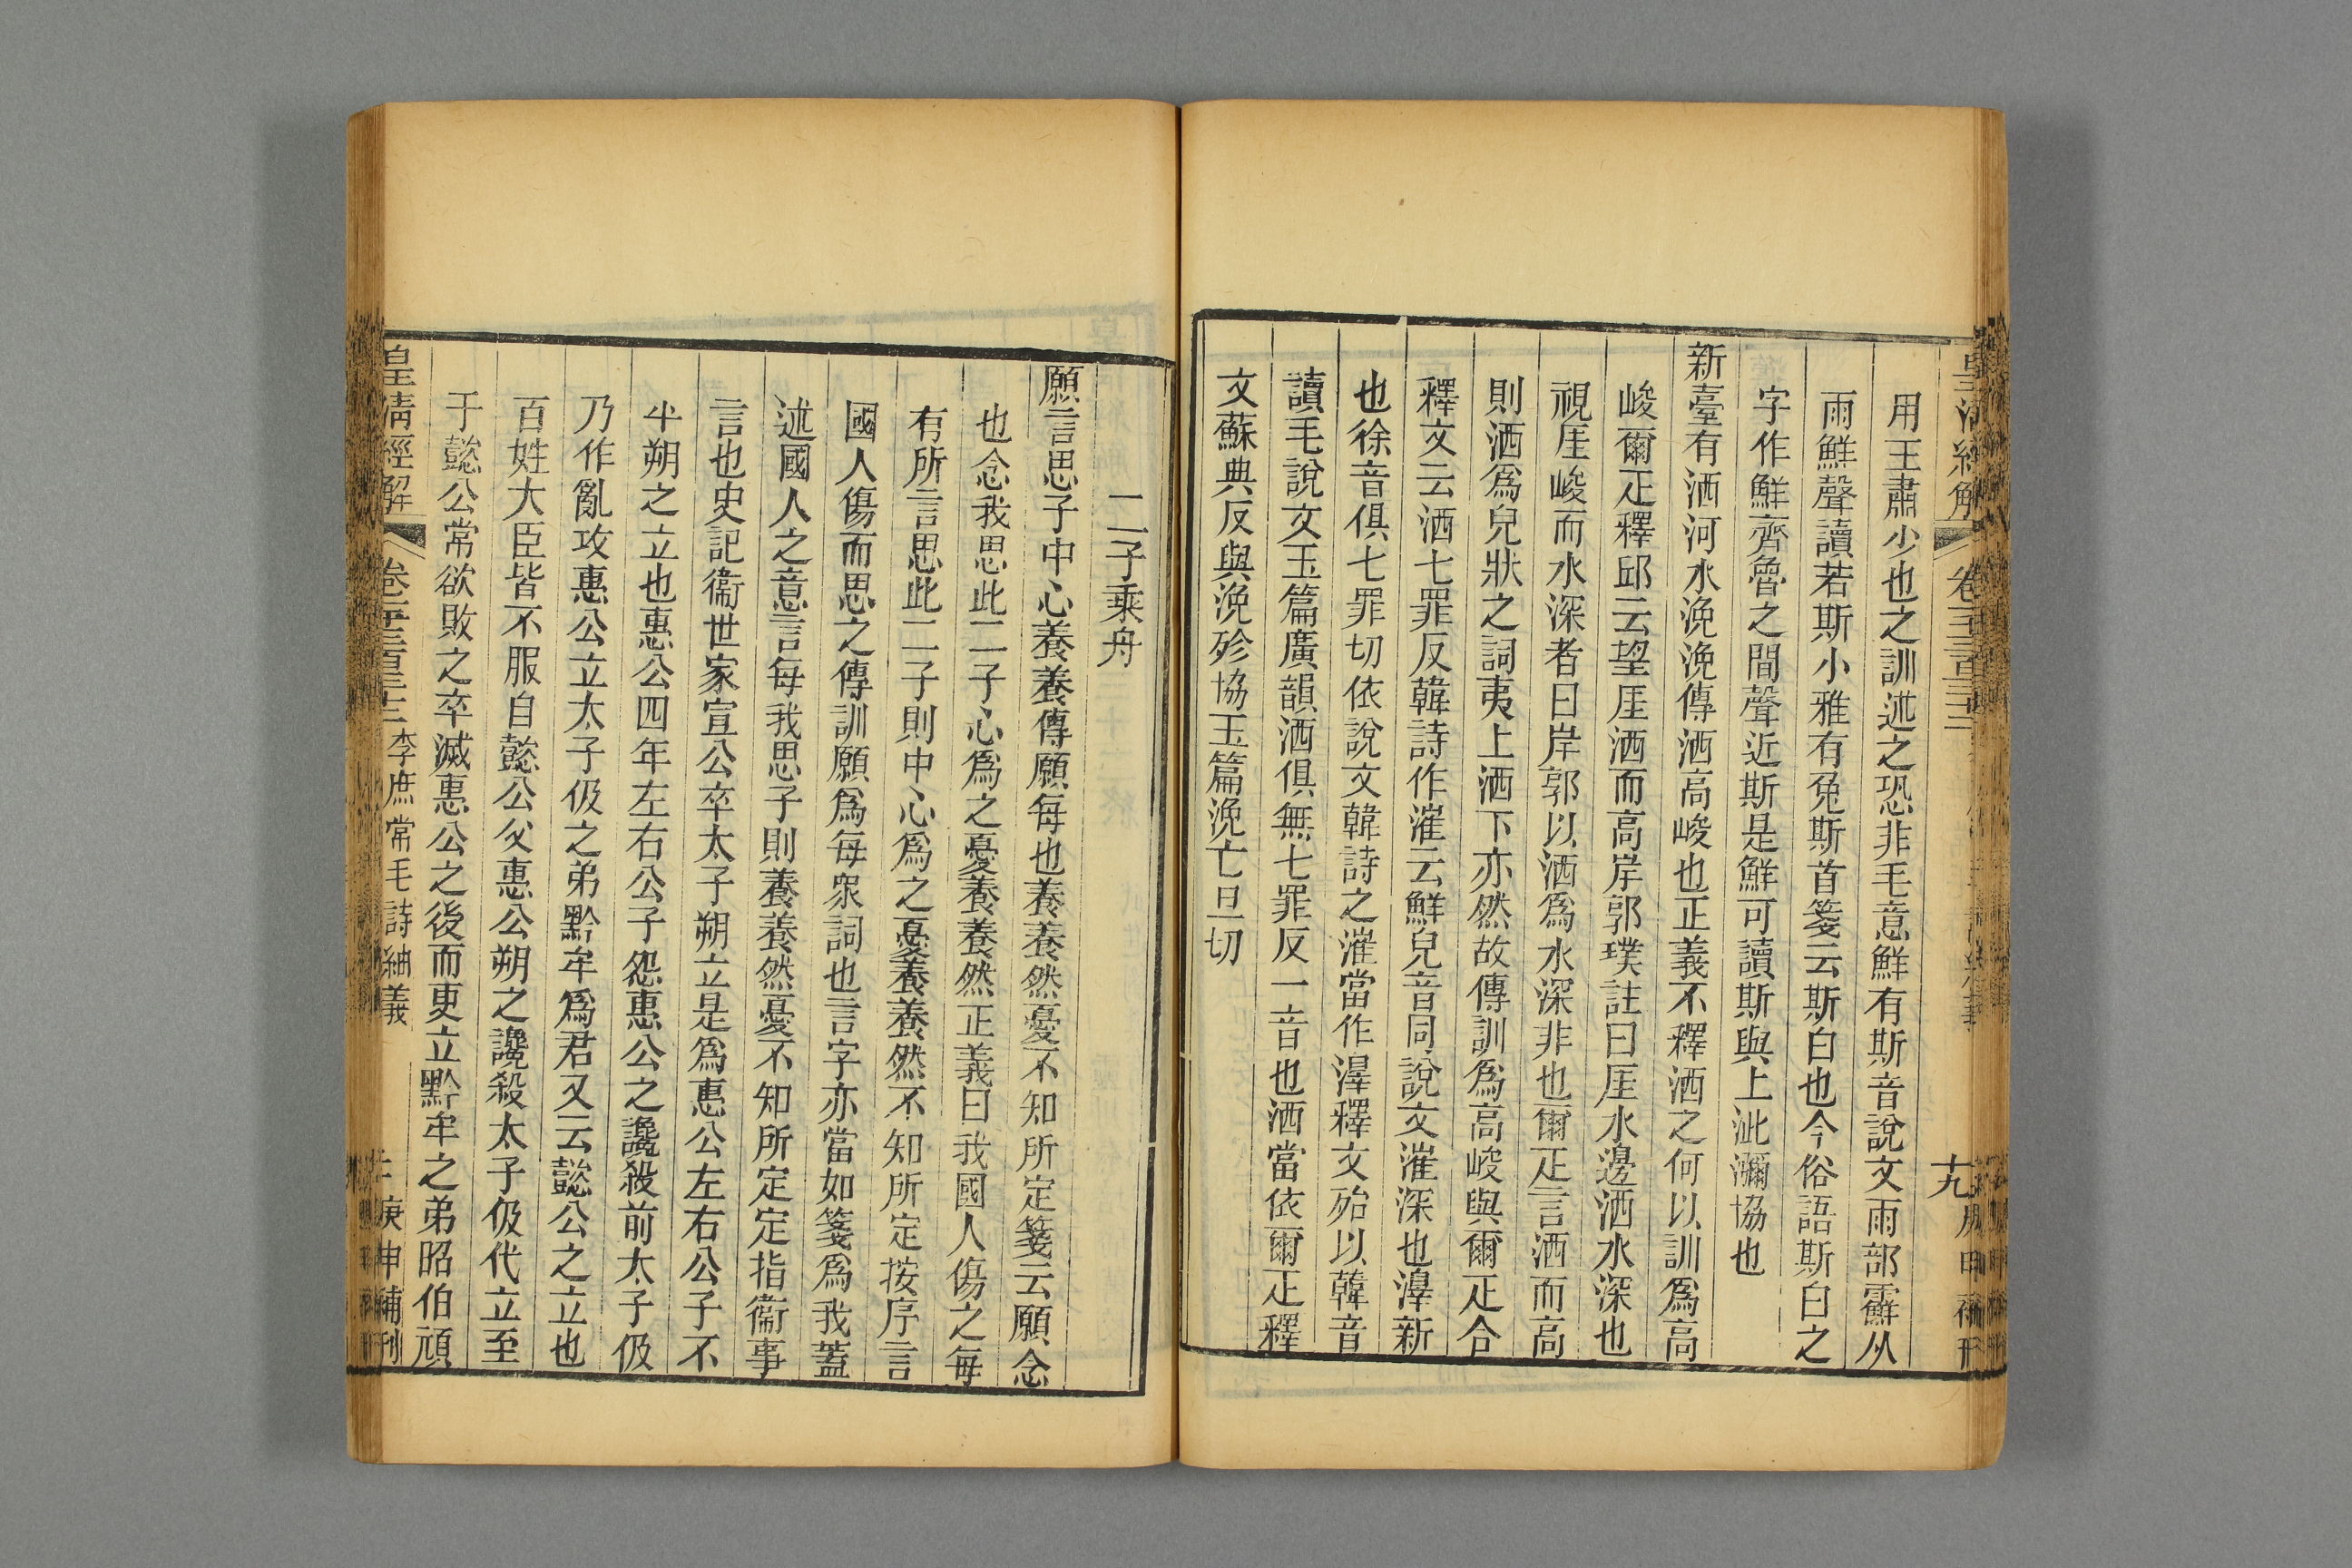 皇清經解
卷一千三百三十三
十九
用王肅少也之訓述之恐非毛意鮮有斯音說文雨部霹从
雨鮮聲讀若斯小雅有兔斯首箋云斯白也今俗語斯白之
字作鮮齊魯之間聲近斯是鮮可讀斯與上泚瀰協也
新臺有洒河水浼浼傳洒高峻也正義不釋洒之何以訓爲高
峻爾疋釋邱云望厓洒而高岸郭璞註曰厓水邊洒水深也
視厓峻而水深者曰岸郭以洒爲水深非也爾疋言洒而高
則洒爲皃狀之詞夷上洒下亦然故傳訓爲高峻與爾疋合
釋文云洒七罪反韓詩作漼云鮮皃音同說文漼深也濢新
也徐音俱七罪切依說文韓詩之漼當作濢釋文殆以韓音
讀毛說文玉篇廣韻洒俱無七罪反一音也洒當依爾疋釋
文蘇典反與浼殄協玉篇浼亡旦切
二子乘舟
願言思子中心養養傳願每也養養然憂不知所定箋云願念
也念我思此二子心爲之憂養養然正義曰我國人傷之每
有所言思此二子則中心爲之憂養養然不知所定按序言
國人傷而思之傳訓願爲每眾詞也言字亦當如箋爲我蓋
述國人之意言每我思子則養養然憂不知所定定指衞事
言也史記衞世家宣公卒太子朔立是爲惠公左右公子不
平朔之立也惠公四年左右公子怨惠公之讒殺前太子伋
乃作亂攻惠公立太子伋之弟黔牟爲君又云懿公之立也
百姓大臣皆不服自懿公父惠公朔之讒殺太子伋代立至
于懿公常欲敗之卒滅惠公之後而更立黔牟之弟昭伯頑
皇清經解
李庶常毛詩紬義
庚申補刊